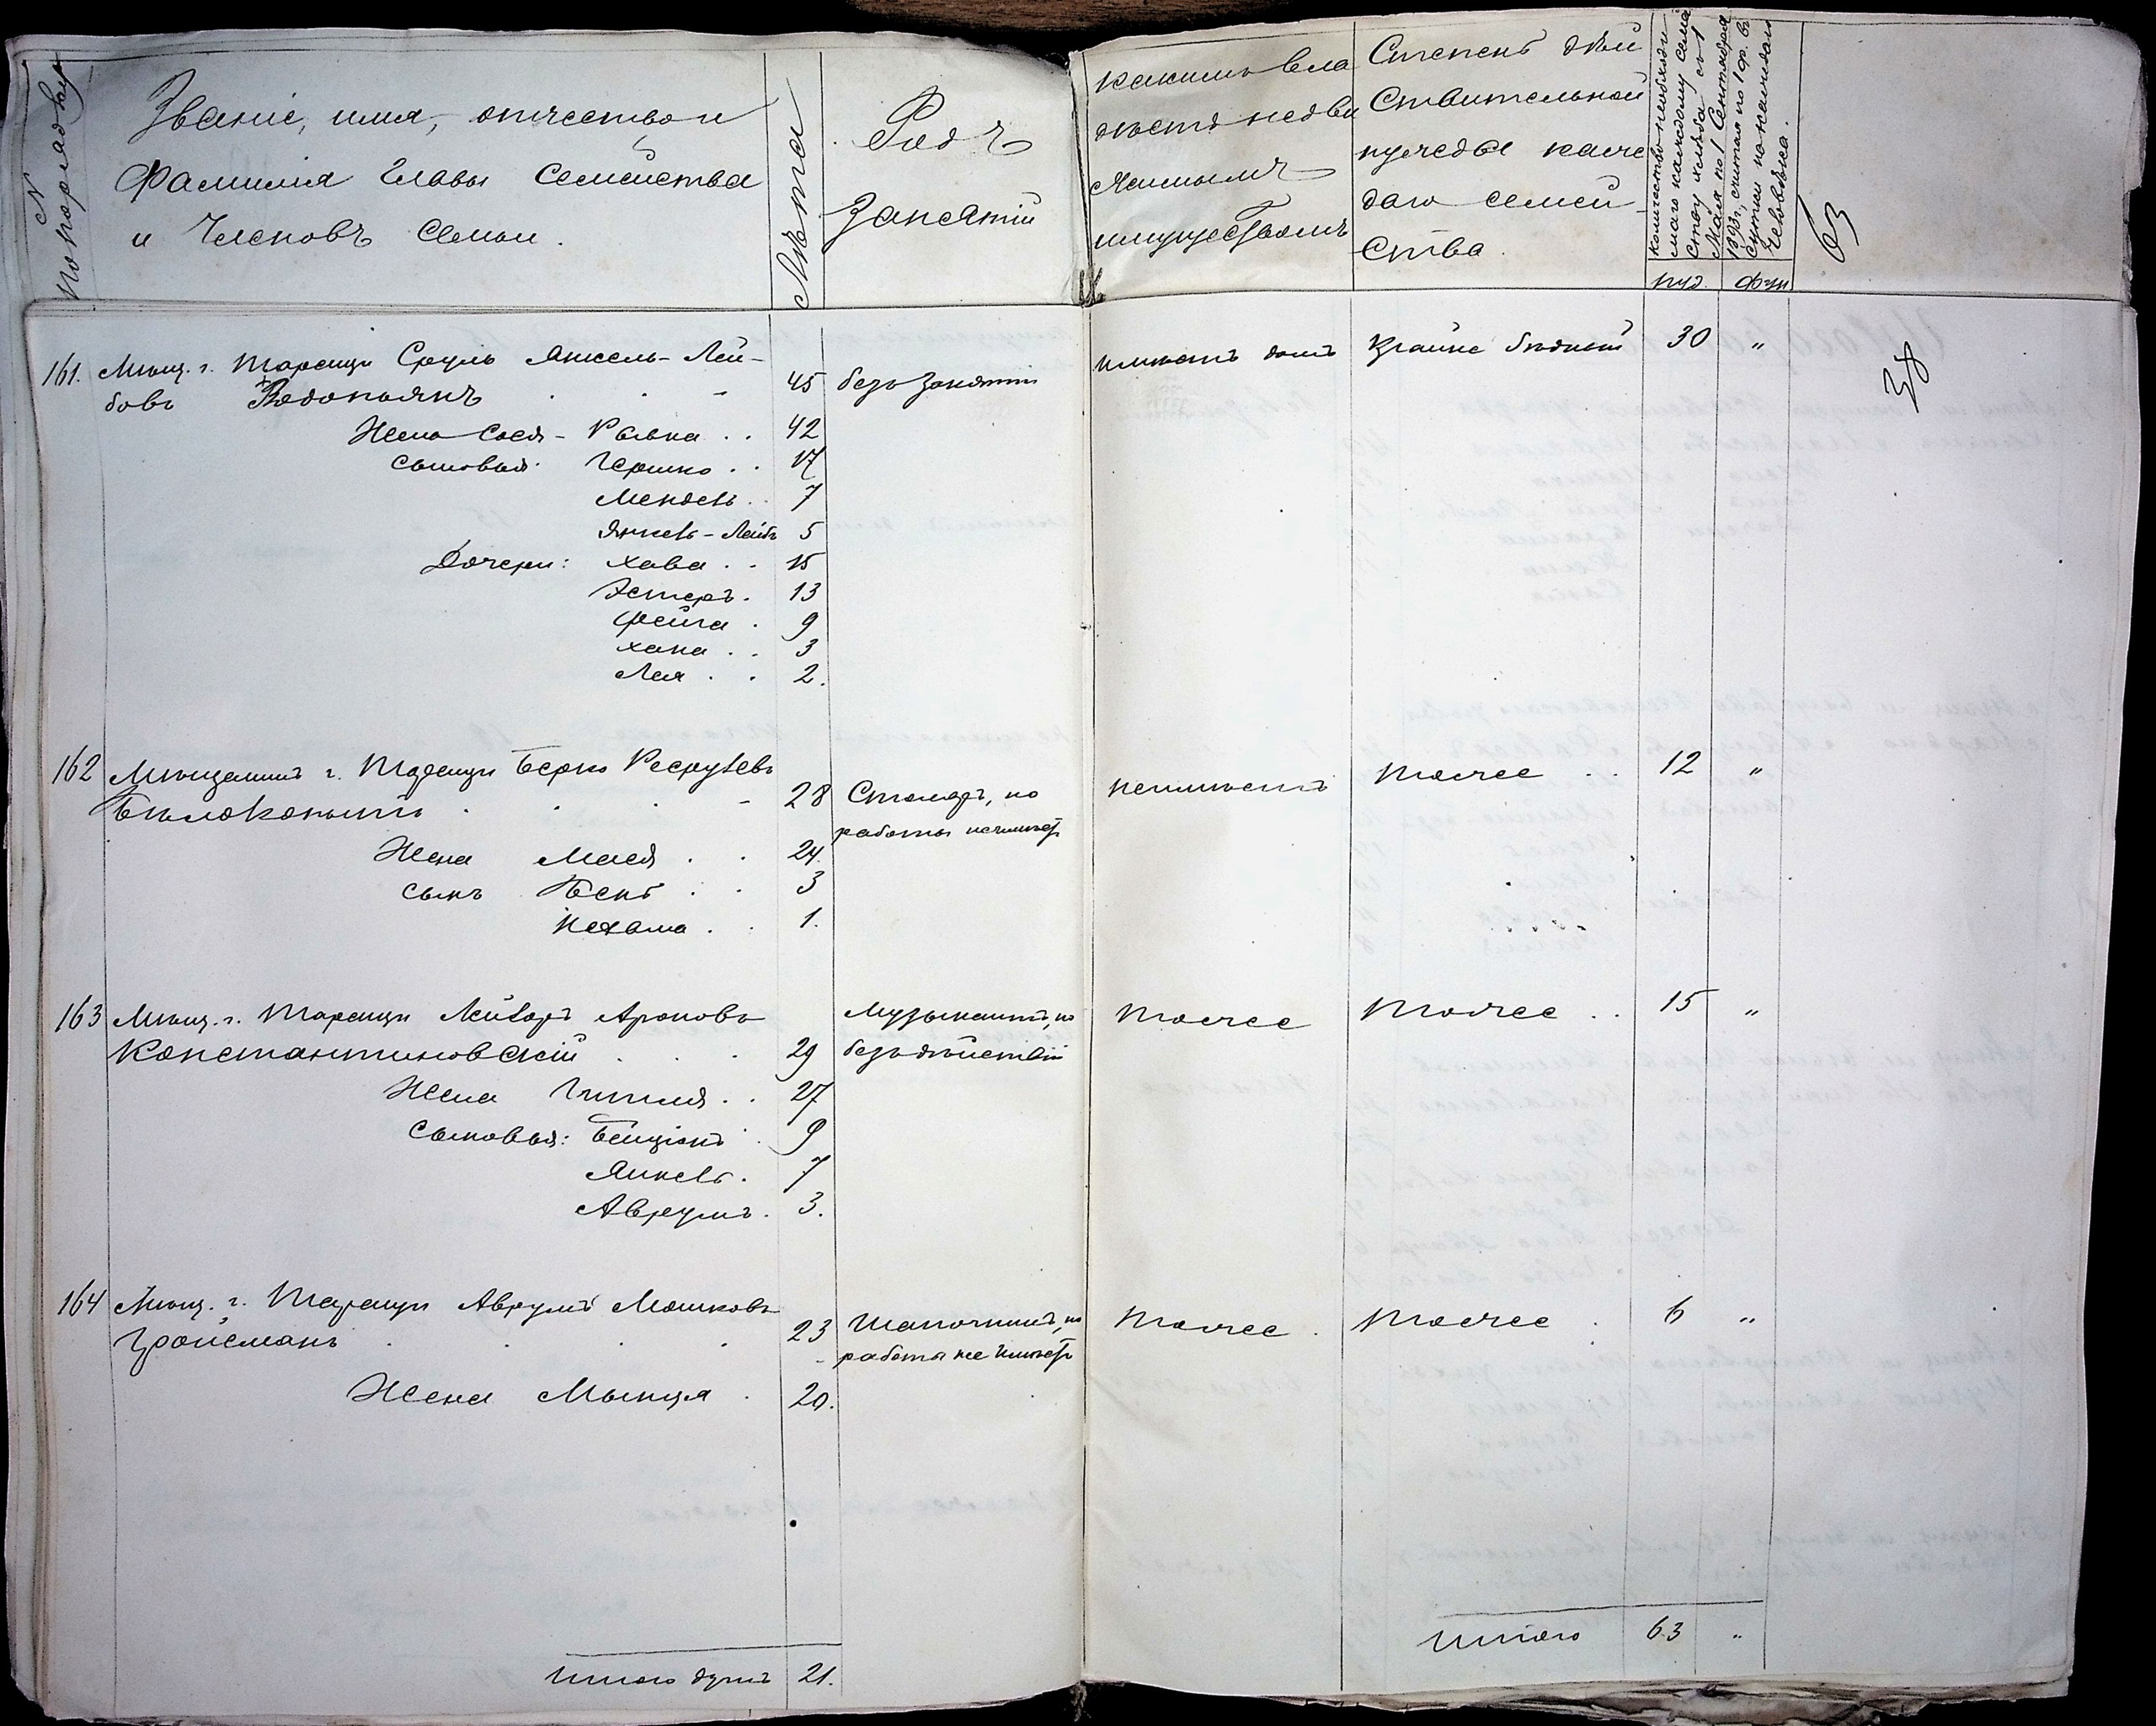 N по порядку
Званіе, имя, отчество и
Фамилія Главы Семейства
и Членовъ Семьи.
Лѣта
Родъ
Занятій
Какимъ вла
дѣетъ недви
жимымъ
имуществомъ
Степень дѣй
ствительной
нужды каж
даго семей-
ства.
Количество необходи
маго каждому семей
ству хлѣба съ 1
Мая по 1 Сентября
1893 г., считая по 1 ф. въ
сутки на каждаго
человѣка.
пуд. фун
63
38
161. Мѣщ. г. Таращи Сруль Янкель-Лей-
бовъ Водопьянъ 45 безъ занятій имѣетъ домъ Крайне бѣдный 30 "
Жена Сося-Ривка 42
Сыновья: Гершко 17
Мендель 7
Янкель-Лейбъ 5
Дочери: Хава 15
Эстеръ 13
Фейга 9
Хана 3
Лея 2.
162 Мѣщанинъ г. Таращи Берко
Бѣлокопытъ 28 Столяръ, но неимѣетъ Тоже 12 "
работы неимѣетъ
Жена Мася 24.
Сынъ Бенъ 3
Нехама 1.
163 Мѣщ. г. Таращи Лейзоръ Ароновъ Музыкантъ, но Тоже Тоже 15 "
Константиновскій 29 безъ дѣйствій
Жена Гитля 27
Сыновья: Бенціонъ 9
Янкель 7
Аврумъ 3.
164 Мѣщ. г. Таращи Аврумъ Мошковъ
Гройсманъ 23 Шапочникъ, но Тоже Тоже 6 "
работы не имѣетъ
Жена Мынця 20.
Итого душъ 21.
Итого 63 "